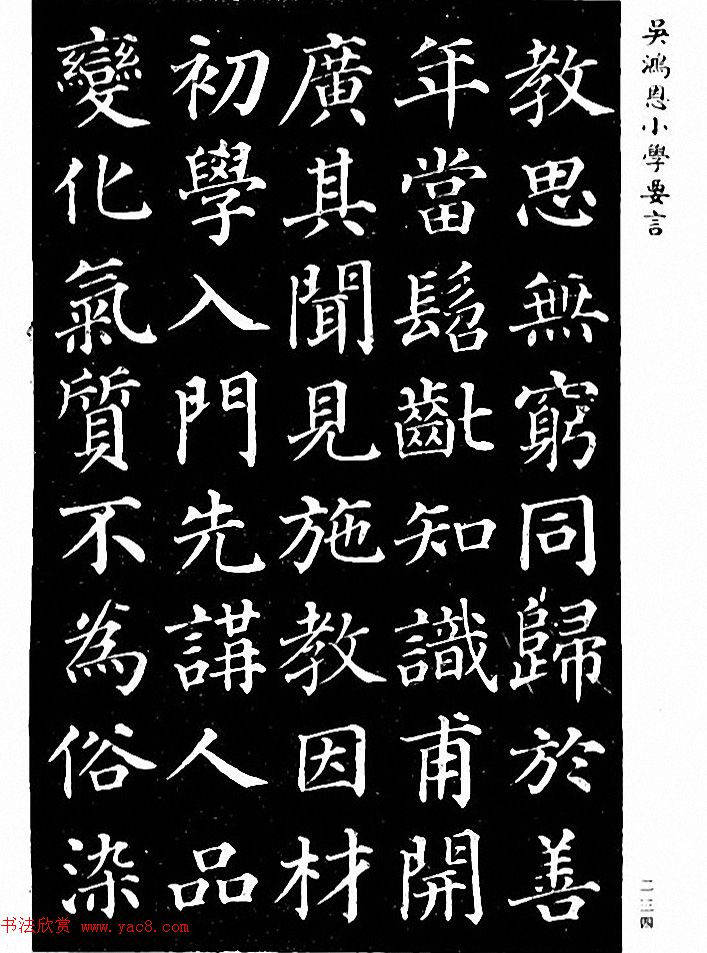 吳鴻恩小學要言
教思無窮同歸於善
年當髫齔知識甫開
廣其聞見施教因材
初學入門先講人品
變化氣質不為俗染
二三四
书法欣赏 www.yac8.com